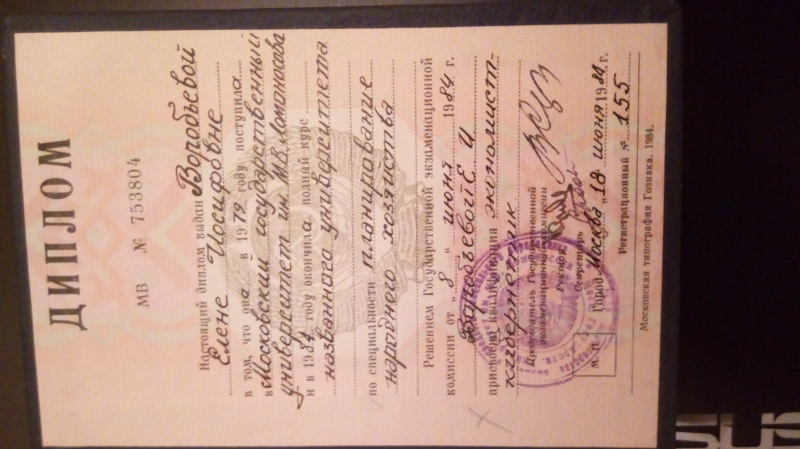 ДИПЛОМ
МВ № 753804
Настоящий диплом выдан Воробьевой
Елене Иосифовне
в том, что она в 1979 году поступила
в Московский государственный
университет им. М.В. Ломоносова
и в 1984 году окончила полный курс
названного университета
по специальности планирование
народного хозяйства
Решением Государственной экзаменационной
комиссии от „8“ июня 1984 г.
Воробьевой Е И
присвоена квалификация экономист-
кибернетик
Председатель Государственной
экзаменационной комиссии
Ректор
Секретарь
М. П.
Город Москва „18“ июня 1984 г.
Регистрационный № 155
Московская типография Гознака. 1984.
SUS